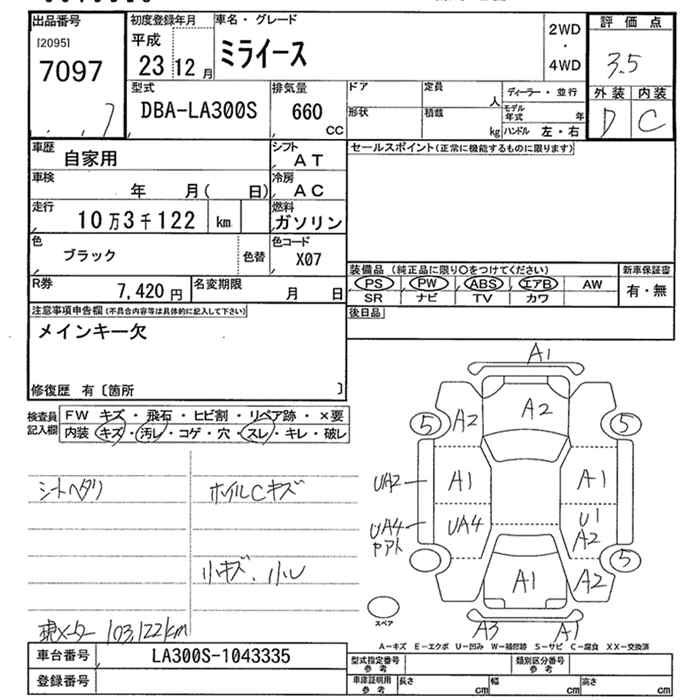 出品番号
[2095]
7097
初度登録年月
平成
23 12 月
車名・グレード
ミライース
2WD
・
4WD
評価点
3.5
外装 内装
D C
型式
DBA-LA300S
排気量
660
CC
ドア
定員
人
形状
積載
kg
ディーラー・並行
モデル年式 年
ハンドル 左・右
車歴
自家用
シフト
AT
車検
年 月( 日)
冷房
AC
走行
10万3千122 km
燃料
ガソリン
色
ブラック
色替
色コード
X07
R券
7,420 円
名変期限
月 日
セールスポイント(正常に機能するものに限ります)
装備品 (純正品に限り〇をつけてください)
PS PW ABS エアB AW
SR ナビ TV カワ
新車保証書
有・無
後日品
注意事項申告欄(不具合内容等は具体的に記入して下さい)
メインキー欠
修復歴 有〔箇所 〕
検査員記入欄
FW キズ・飛石・ヒビ割・リペア跡・×要
内装 キズ・汚レ・コゲ・穴・スレ・キレ・破レ
シートヘタリ
ホイルCキズ
小キズ、小レ
現メーター 103,122km
A1
A2
A2
5
5
A1
A1
UA2
UA4
UA4
ヤアト
U1
A2
A1
A2
5
A3
A1
スペア
A-キズ E-エクボ U-凹み W-補修跡 S-サビ C-腐食 XX-交換済
車台番号
LA300S-1043335
登録番号
型式指定番号
参考
類別区分番号
参考
車庫証明用
参考
長さ cm
幅 cm
高さ cm